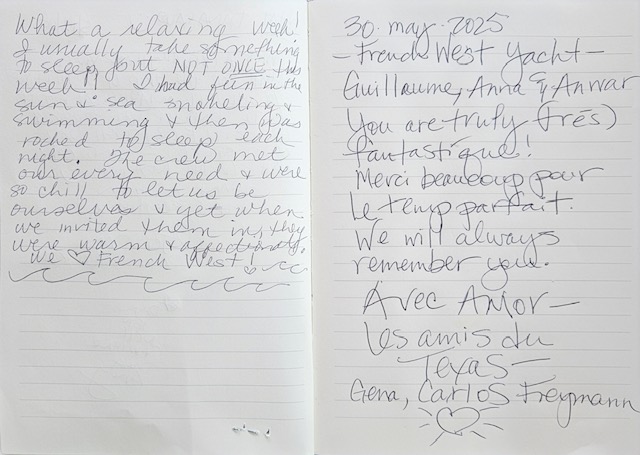 What a relaxing week!
I usually take something
to sleep but NOT ONCE this
week!! I had fun in the
sun & sea snorkeling &
swimming & then was
rocked to sleep each
night. The crew met
our every need & were
so chill to let us be
ourselves & yet when
we invited them in, they
were warm & affectionate.
We ♡ French West!
30. may. 2025
- French West Yacht -
Guillaume, Anna & Anwar
You are truly (trés)
fantastique!
Merci beaucoup pour
le temp parfait.
We will always
remember you.
Avec Amor -
Les amis du
Texas -
Gena, Carlos Freymann